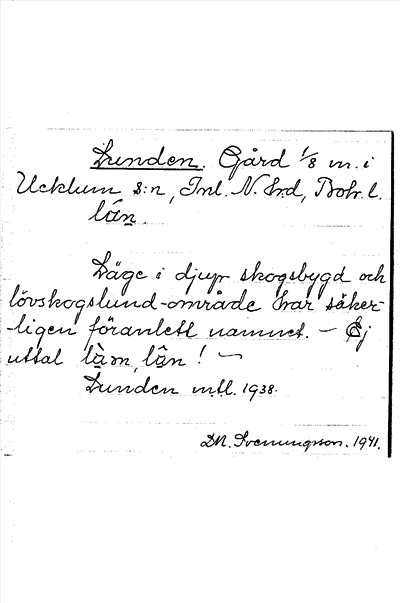 Lunden. Gård 1/8 m. i
Ucklum s:n, Inl. N. Hrd, Boh. l.
lân.
Läge i djup skogsbygd och
lövskogslund-område har säker-
ligen föranlett namnet. — Ej
uttal làn, lân! —
Lunden mtl. 1938.
D.N. Svenungsson. 1941.